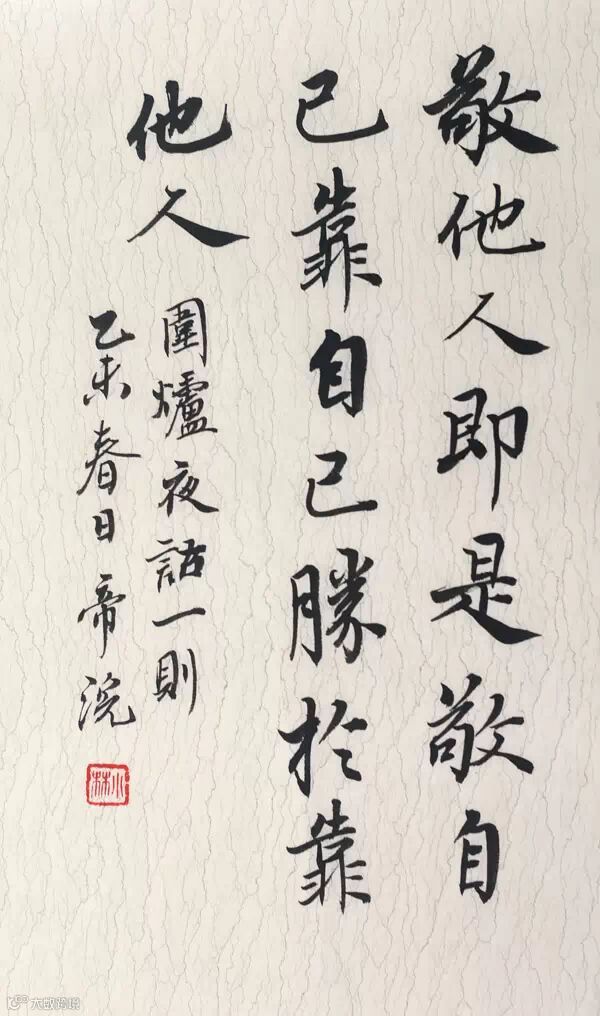 敬他人即是敬自
己靠自己勝於靠
他人
圍爐夜話一則
乙未春日帝浣
小林
大数跨境